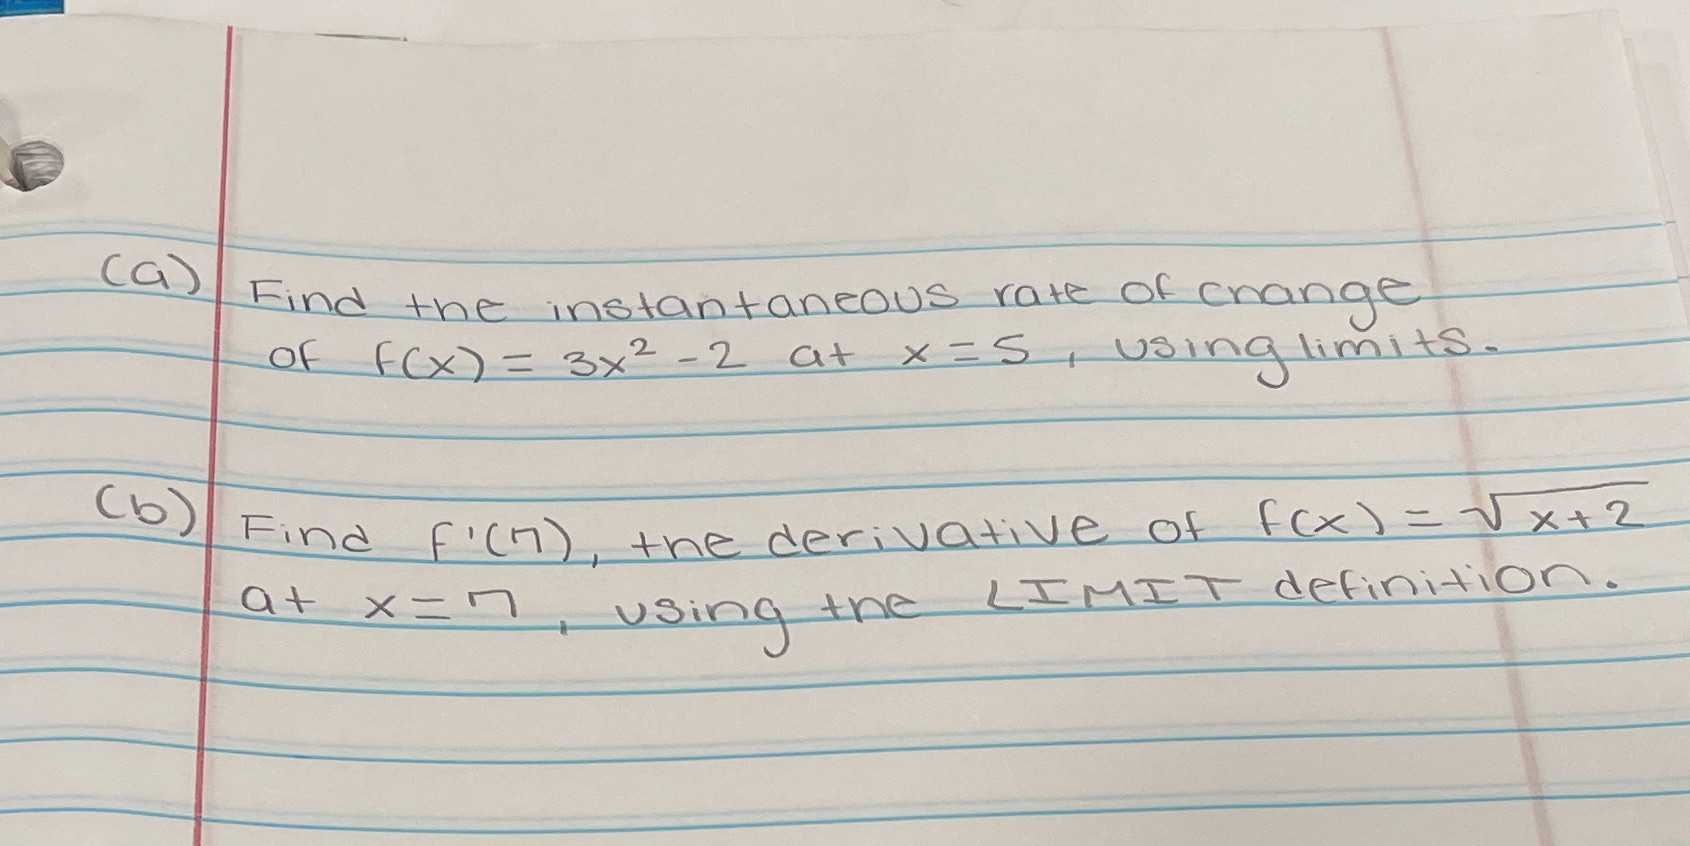 (a) Find the instantaneous rate of change
of f(x) = 3x² - 2 at x = 5, using limits.
(b) Find f'(7), the derivative of f(x) = √x+2
at x = 7, using the LIMIT definition.